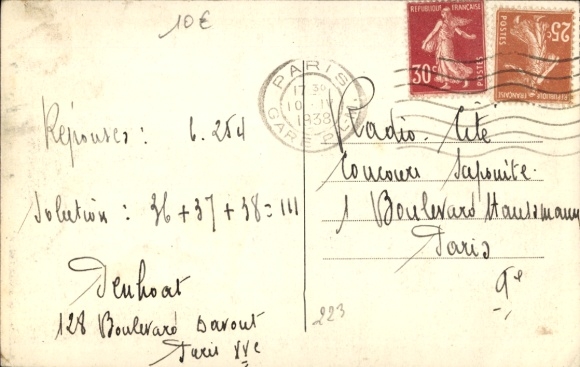 10€
RÉPUBLIQUE FRANÇAISE
30c
POSTES
25c
POSTES
REPUBLIQUE FRANÇAISE
PARIS
17 30
10 - IV
1938
GARE P.L.M.
Réponses : 6.254
Solution : 36 + 37 + 38 = 111
128 Boulevard Davout
Paris XXe
Radio-Cité
Concours Saponite.
1 Boulevard Haussmann
Paris
9e
223